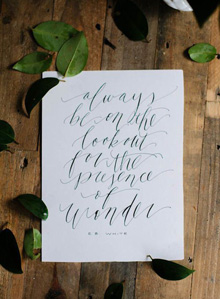 always
be on the
lookout
for the
presence
of
wonder